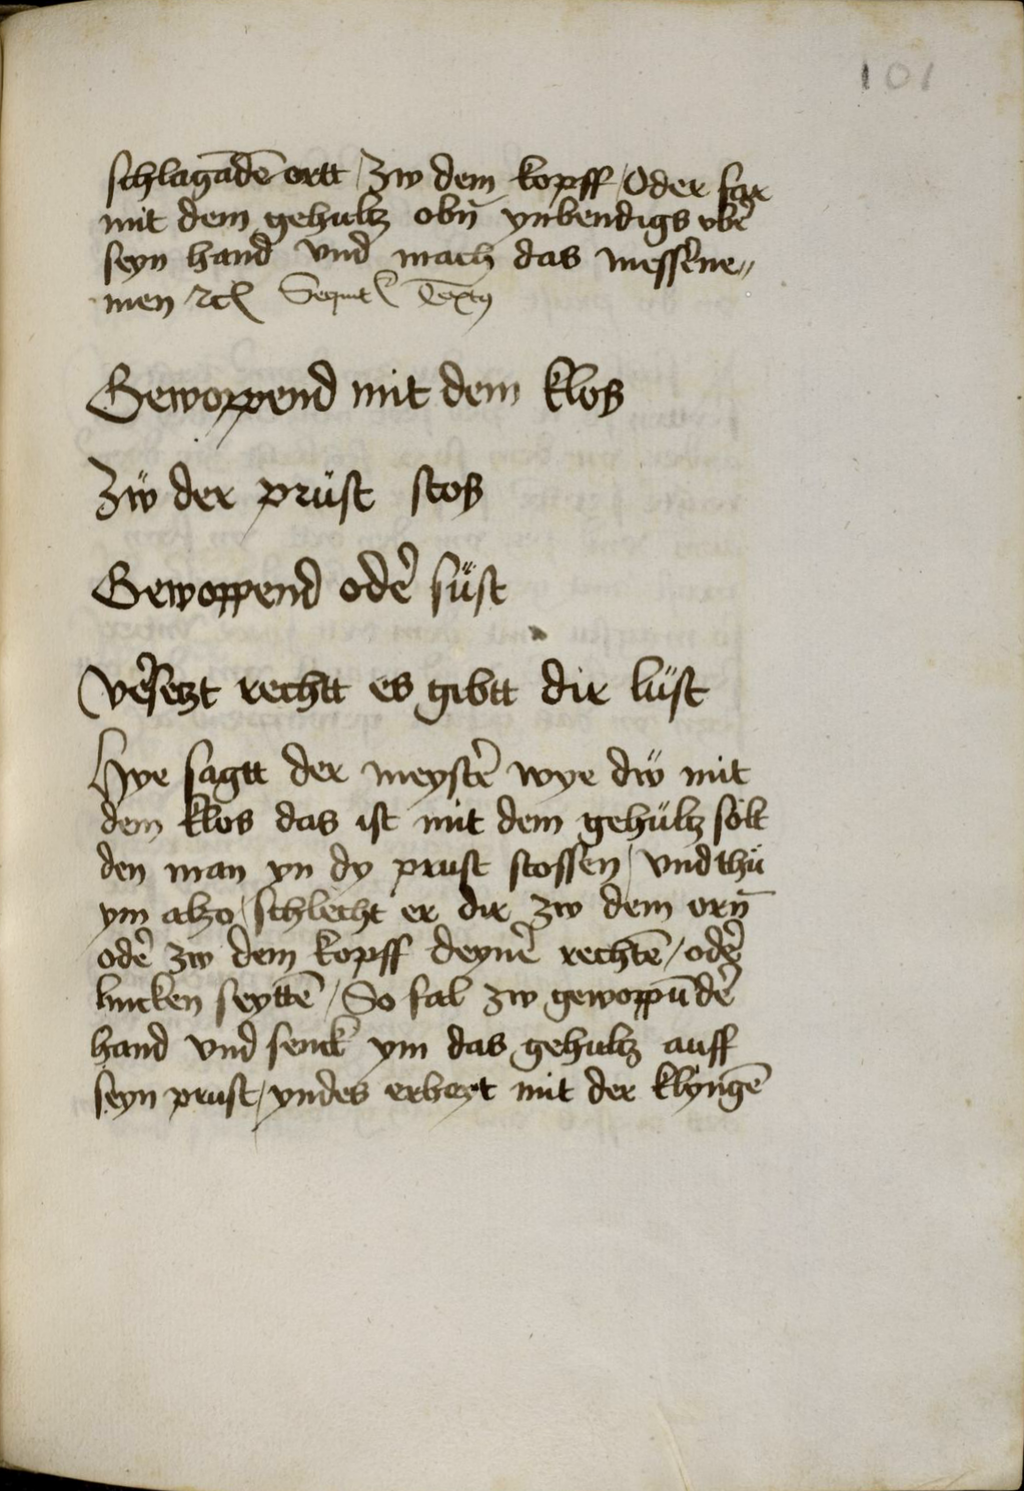 101
schlagādē ortt / Zw dem kopff / Oder far
mit dem gehultz obn̄ ynbendigs vber̉
seyn hand vnd mach das messer̉ne〃
men ⁊cꝭ Sequit̉ Textꝰ
Gewoppend mit dem klos
Zẅ der prüst stos
Gewoppend oder̉ süst
Ver̉setzt rechtt es gibtt dir lüst
Hye sagtt der meyster̉ wye dẅ mit
dem klos das ist mit dem gehültz solt
den man yn dy prust stossen / vnd thü
ym alzo / schlecht er dir zw dem orn̄
oder̉ zw dem kopff deyner̉ rechtē / oder̉
lincken seyttē / So fal zw gewoppūder̉
hand vnd senck ym das gehultz auff
seyn prust / yndes erheyt mit der klyngē